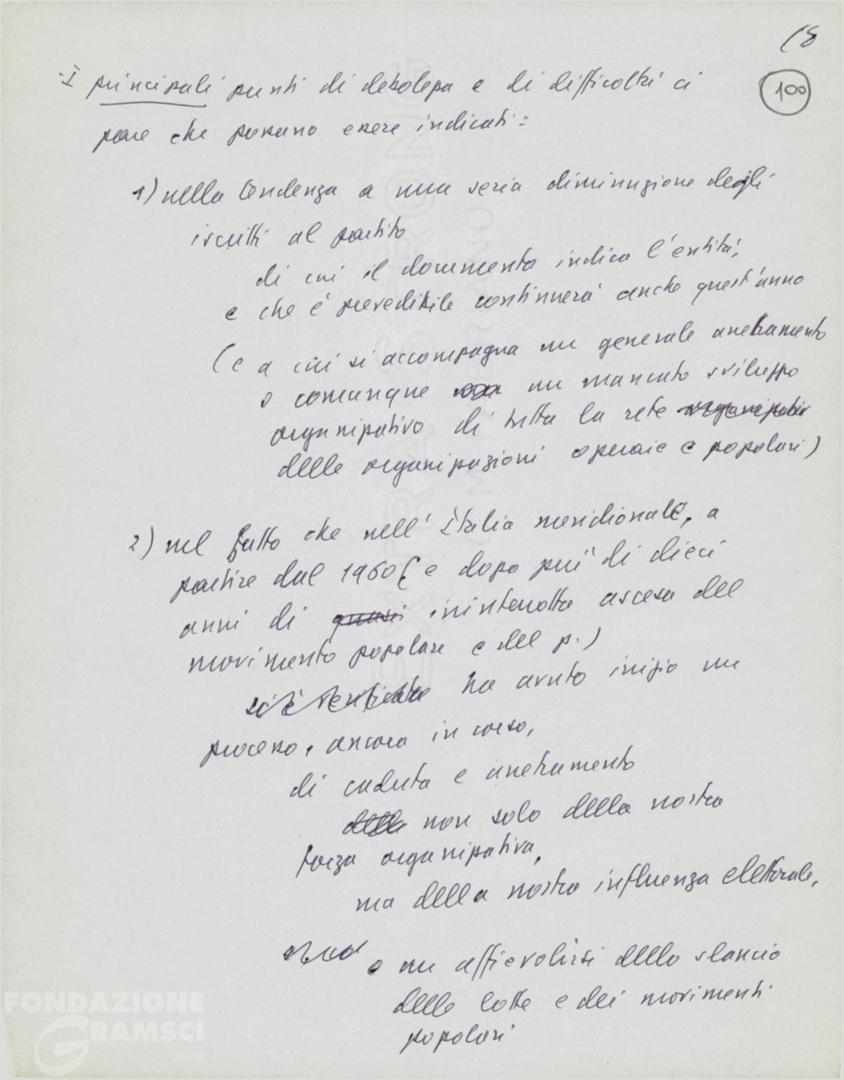 18
100
- I principali punti di debolezza e di difficoltà ci
pare che possano essere indicati:
1) nella tendenza a una seria diminuzione degli
iscritti al partito
di cui il documento indica l'entità,
e che è prevedibile continuerà anche quest'anno
(e a cui si accompagna un generale arretramento
o comunque un mancato sviluppo
organizzativo di tutta la rete organizzativa
delle organizzazioni operaie e popolari)
2) nel fatto che nell'Italia meridionale, a
partire dal 1960 (e dopo più di dieci
anni di quasi ininterrotta ascesa del
movimento popolare e del p.)
si è verificato ha avuto inizio un
processo, ancora in corso,
di caduta e arretramento
della non solo della nostra
forza organizzativa,
ma della nostra influenza elettorale,
e un affievolirsi dello slancio
delle lotte e dei movimenti
popolari
FONDAZIONE
GRAMSCI
onlus